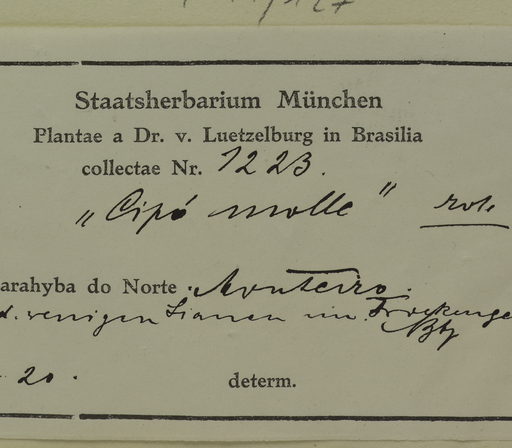 Staatsherbarium München
Plantae a Dr. v. Luetzelburg in Brasilia
collectae Nr. 1223.
„Cipó molle" rot.
arahyba do Norte. Monteiro.
d. wenigen Lianen im Trockenge
20.
determ.